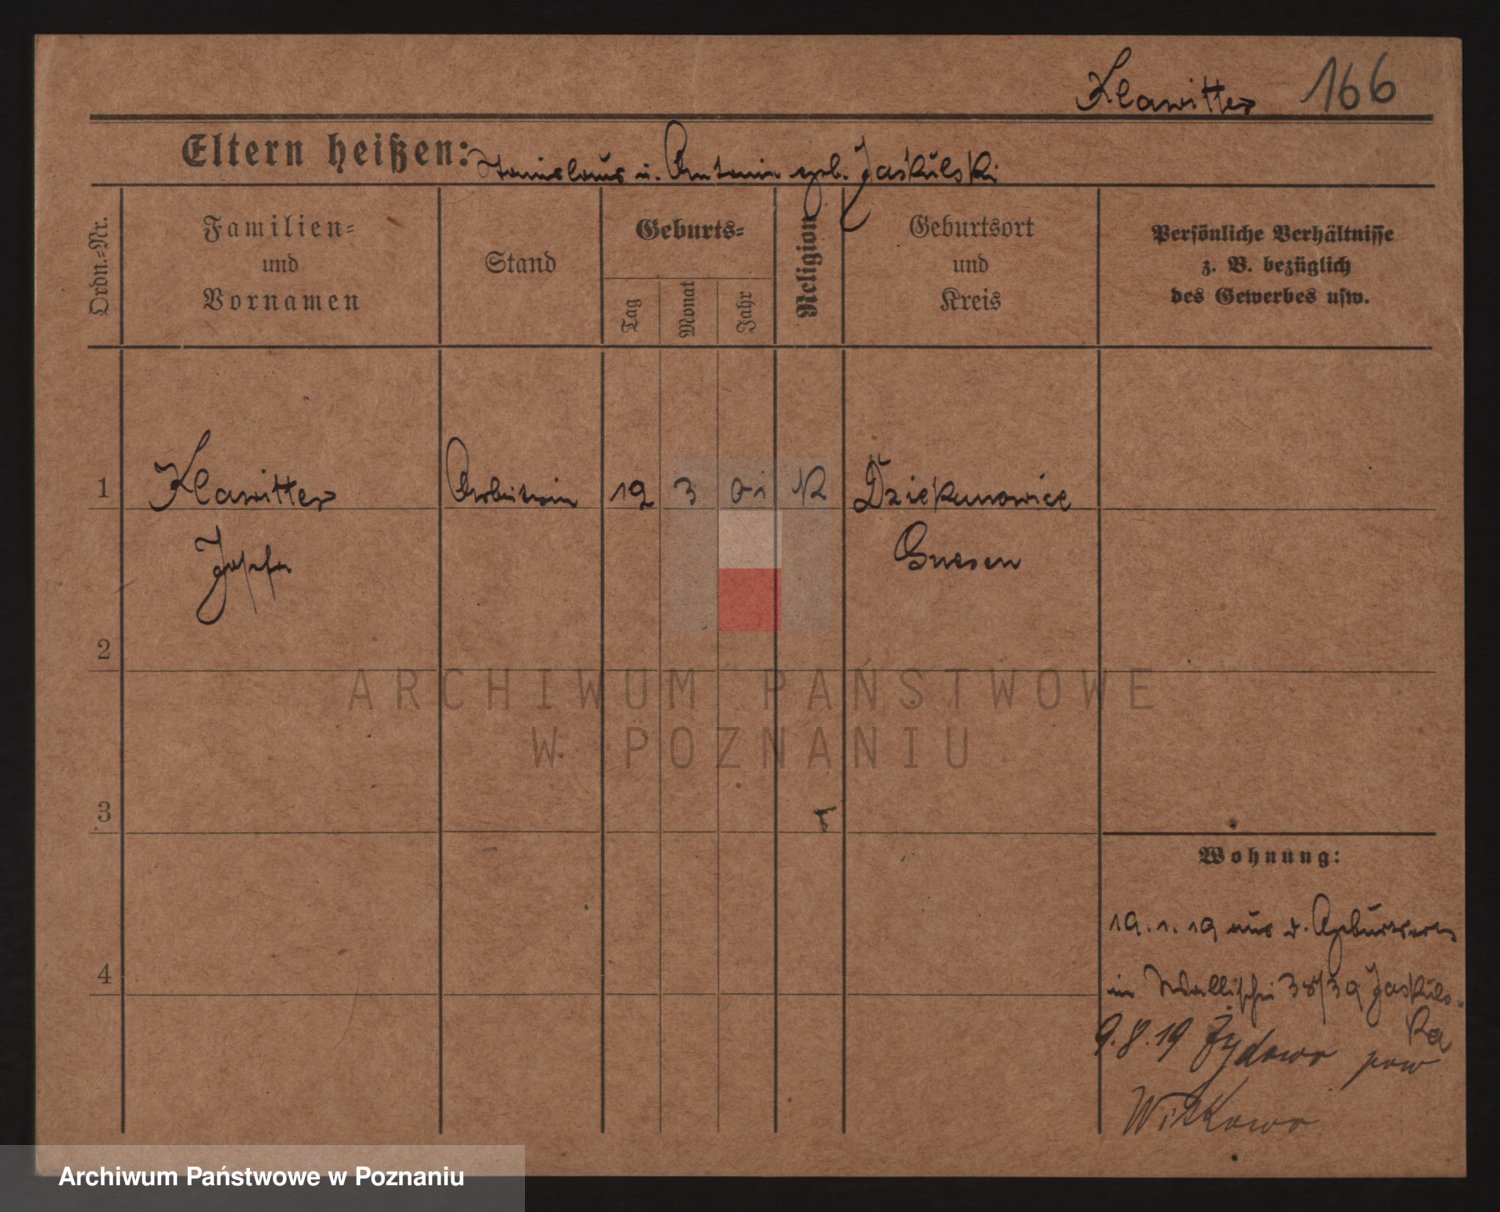 Klawitter 166
Eltern heißen: Stanislaus u. Antonie geb. Jaskulski
Ordn.-Nr.
Familien-
und
Vornamen
Stand
Geburts-
Tag
Monat
Jahr
Religion
Geburtsort
und
Kreis
Persönliche Verhältnisse
z. B. bezüglich
des Gewerbes usw.
1 Klawitter Arbeiterin 19 3 01 K Dziekanowice
Josefa Gnesen
2
3
4
Wohnung:
19. 1. 19 aus d. Geburtsort
in Wallischei 38/39 Jaskuls-
ka
9. 8. 19 Żydowo pow
Witkowo
ARCHIWUM PAŃSTWOWE
W POZNANIU
Archiwum Państwowe w Poznaniu